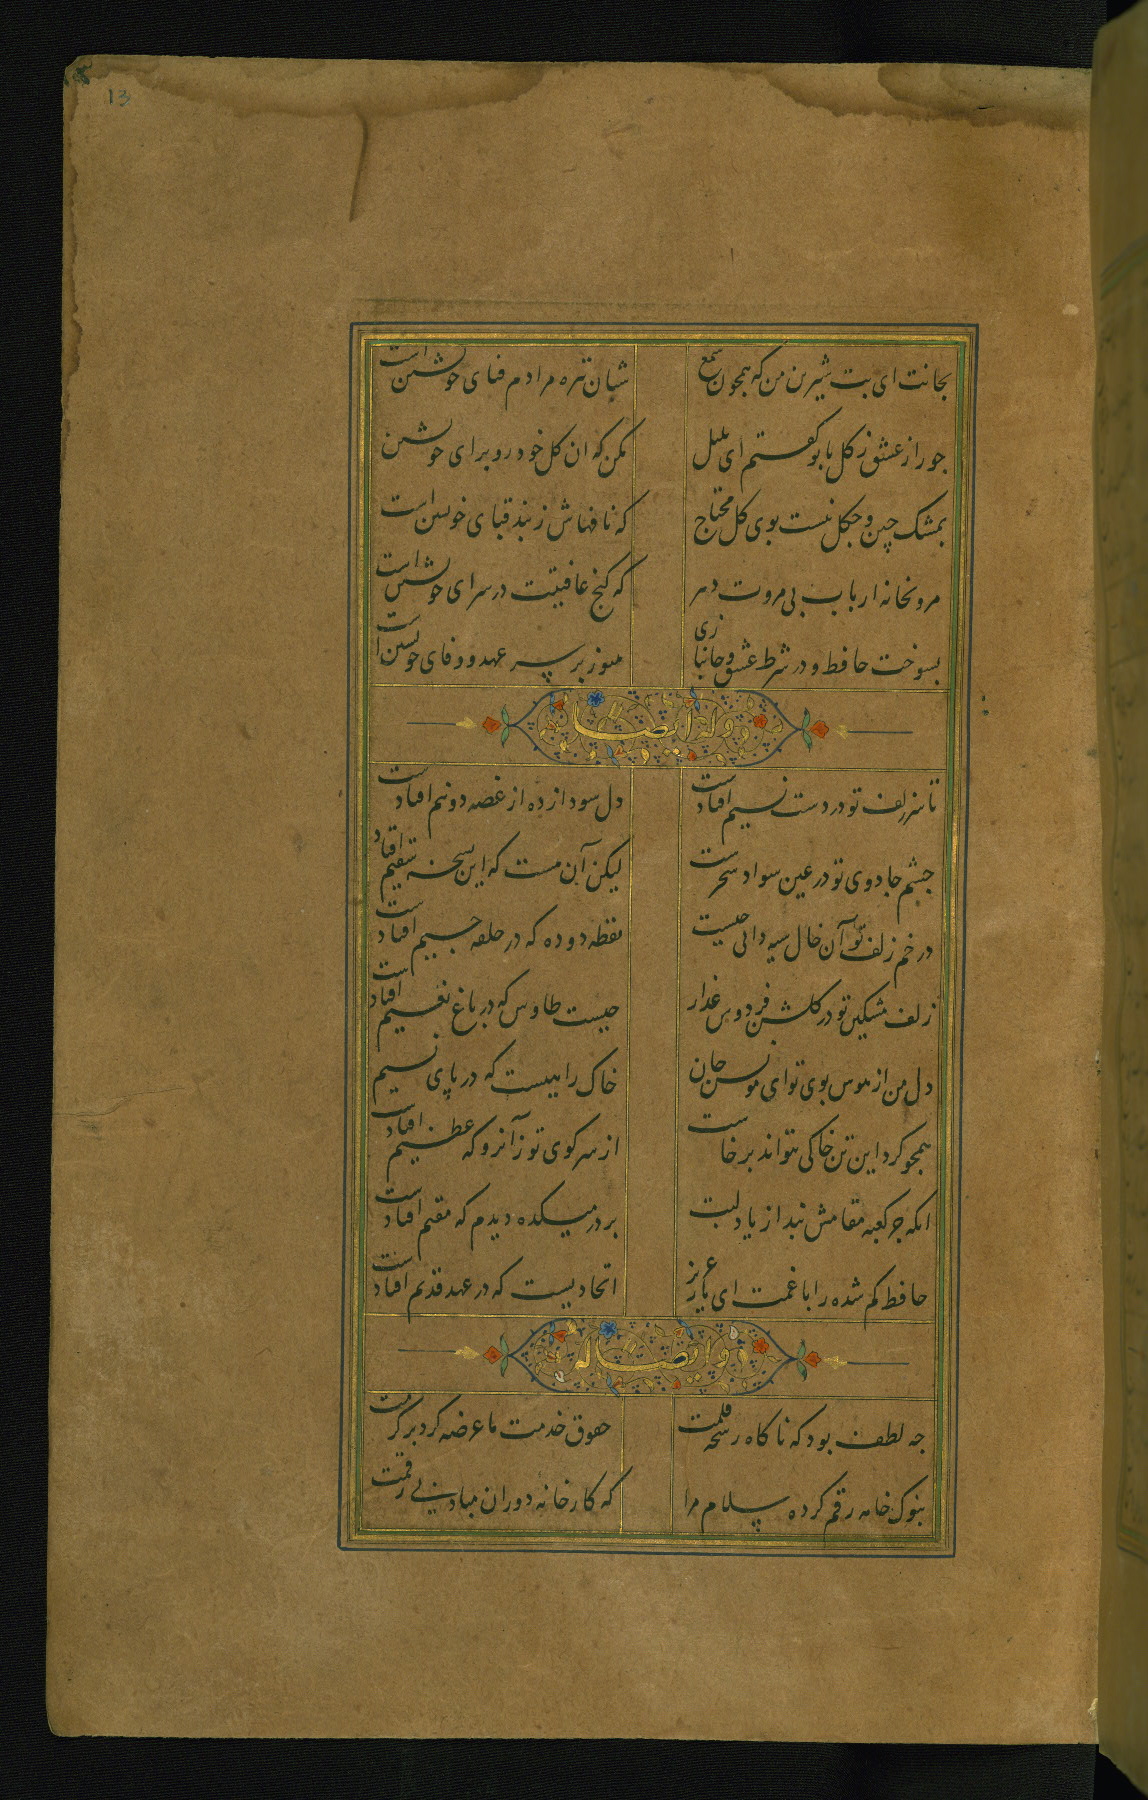 13
بجانت ای بت شیرین من که همچون شمع
شبان تیره مرادم فنای خویشتن است
چو راز عشق زکل با تو کفتم ای بلبل
مکن که ان کل خودرو برای خویشتن
بمشک چین و چکل نیست بوی کل محتاج
که نافهاش ز بند قبای خویشتن است
مرو نجانه ارباب بی مروت دهر
که کنج عافیتت در سرای خویشتن است
بسوخت حافظ و در شرط عشق و جانبازی
هنوز بر سر عهد و وفای خویشتن است
وله ایضا
تا سر زلف تو در دست نسیم افتادست
دل سودازده از غصه دو نیم افتادست
چشم جادوی تو در عین سواد سحرست
لیکن آن هست که این نسخه سقیم افتاد
در خم زلف تو آن خال سیه دانی چیست
نقطه دوده که در حلقه جیم افتادست
زلف مشکین تو در کلشن فردوس عذار
چیست طاوس که در باغ نعیم افتادست
دل من از هوس بوی تو ای مونس جان
خاک راهیست که در پای نسیم
همچو کرد این تن خاکی نتواند برخاست
از سر کوی تو زآنرو که عظیم افتادست
انکه جز کعبه مقامش نبد از یاد لبت
بر در میکده دیدم که مقیم افتادست
حافظ کم شده را با غمت ای یار عزیز
اتحادیست که در عهد قدیم افتادست
وله ایضا
چه لطف بود که ناکاه رشحه قلمت
حقوق خدمت ما عرضه کرد بر کرمت
بنوک خامه رقم کرده سلام مرا
که کارخانه دوران مباد بی رقمت